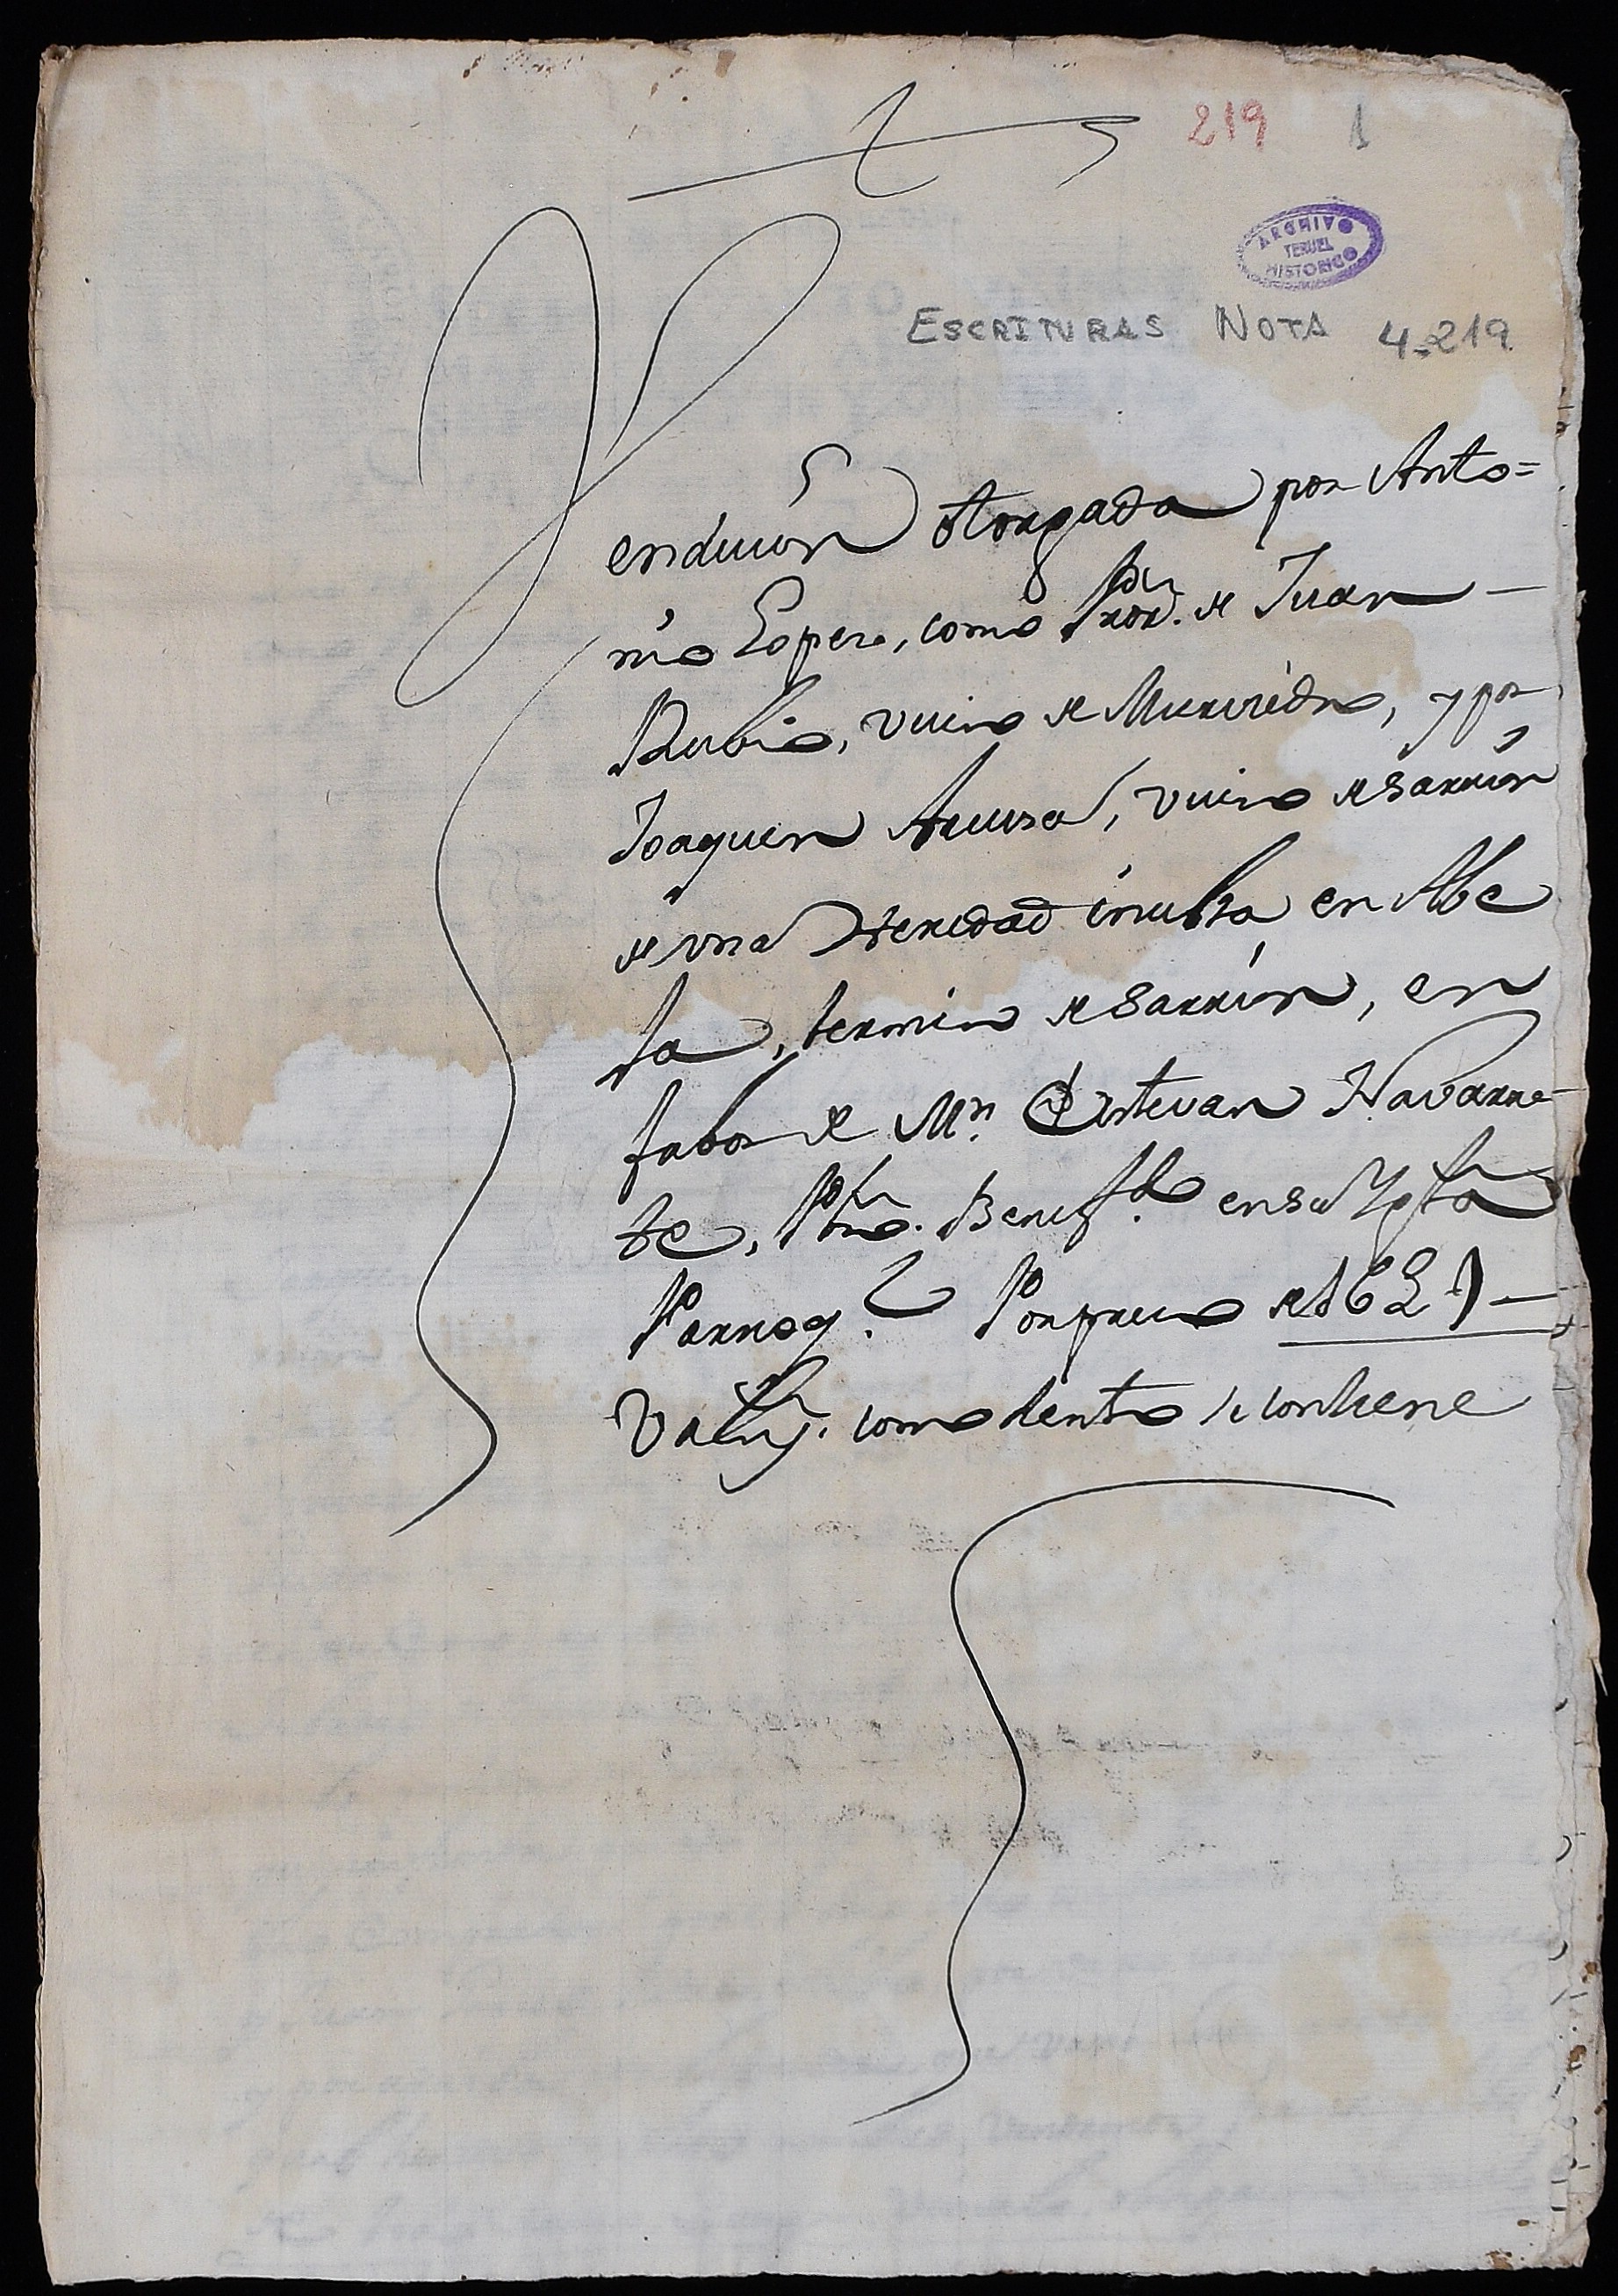 219 1
ARCHIVO
TERUEL
HISTORICO
ESCRITURAS NOTA 4-219.
Vendicion otorgada por Anto=
nio Lopez, como Pror. de Juan —
Rubio, vecino de Murviedro, y por
Joaquin vecino de Sarrion
de una Heredad inculta en Albe
, termino de Sarrion, en
fabor de Mn. Estevan Navarre-
te, Pbro. Benefdo. en su Yglta
Parroql. Por precio de 162 L
Valens. como dentro se contiene